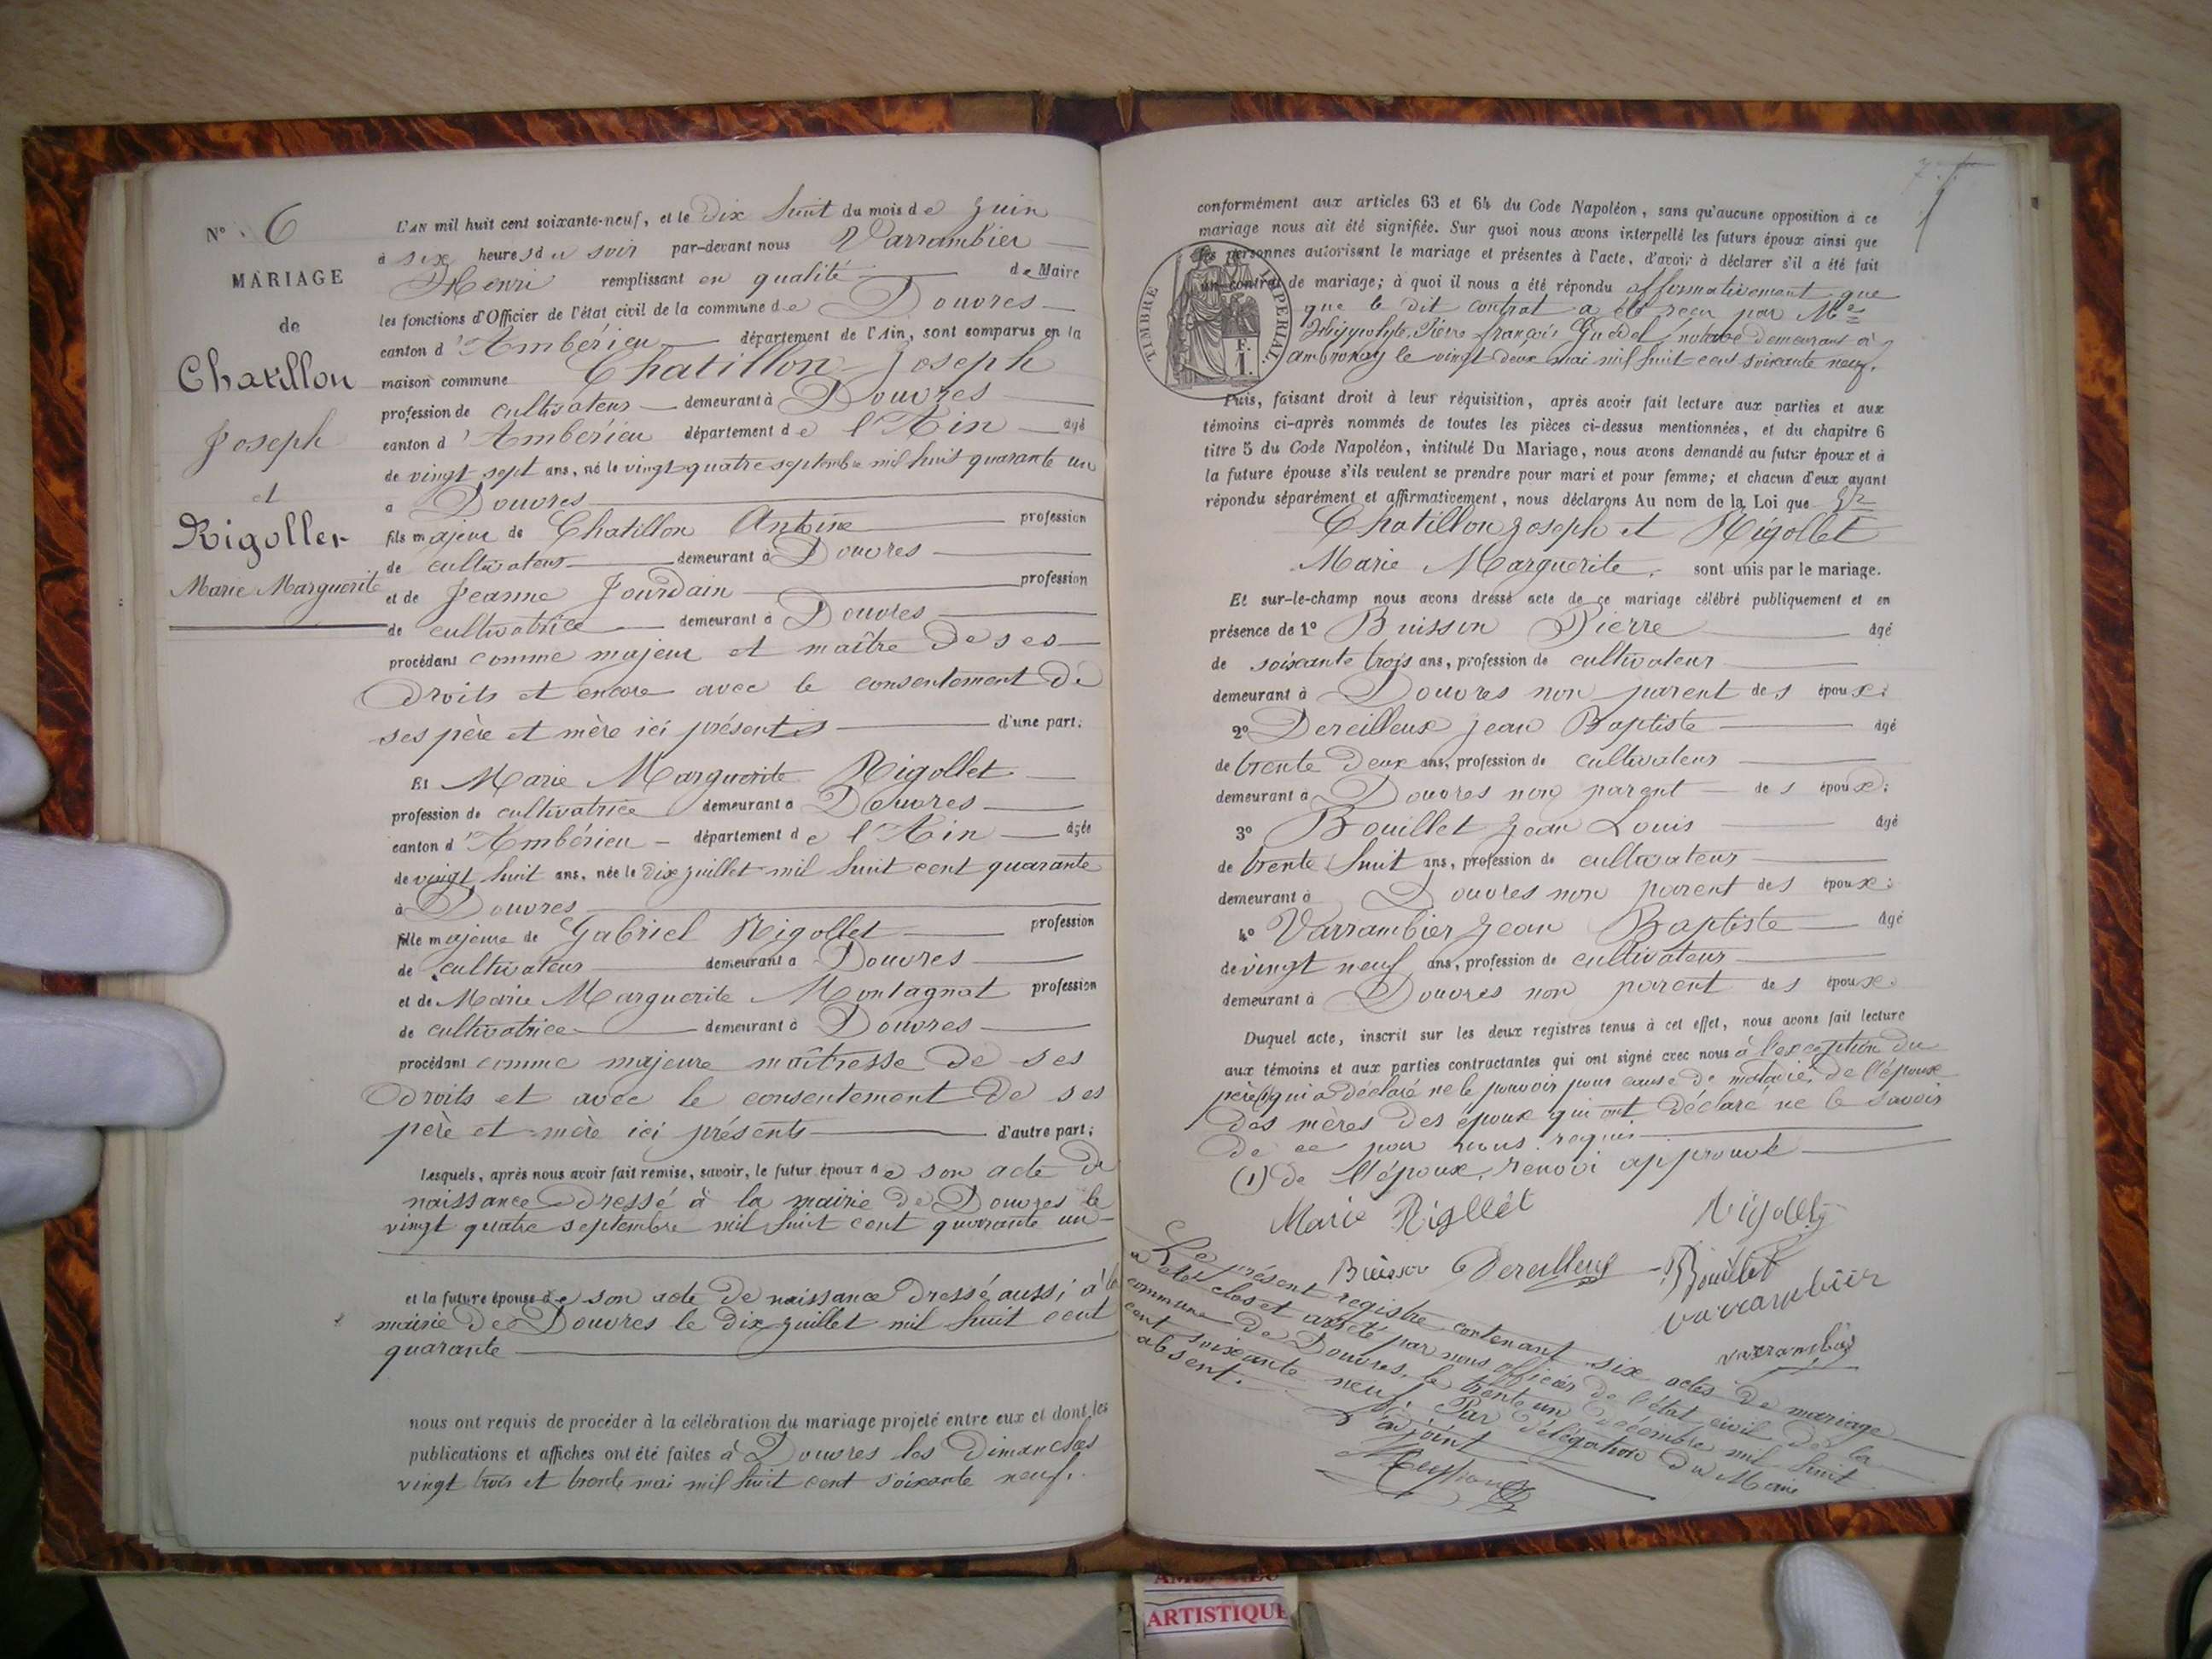 N° 6
MARIAGE
de
Chatillon
Joseph
et
Rigollet
Marie Marguerite
L'AN mil huit cent soixante-neuf, et le dix huit du mois de Juin
à six heures du soir par-devant nous Varrambier
Henri remplissant en qualité de Maire
les fonctions d'Officier de l'état civil de la commune de Douvres
canton d'Ambérieu département de l'Ain, sont comparus en la
maison commune Chatillon Joseph
profession de cultivateur demeurant à Douvres
canton d'Ambérieu département de l'Ain âgé
de vingt sept ans, né le vingt quatre septembre mil huit quarante un
à Douvres
fils majeur de Chatillon Antoine profession
de cultivateur demeurant à Douvres
et de Jeanne Jourdain profession
de cultivatrice demeurant à Douvres
procédant comme majeur et maître de ses
droits et encore avec le consentement de
ses père et mère ici présents d'une part;
Et Marie Marguerite Rigollet
profession de cultivatrice demeurant à Douvres
canton d'Ambérieu département de l'Ain âgée
de vingt huit ans, née le dix juillet mil huit cent quarante
à Douvres
fille majeure de Gabriel Rigollet profession
de cultivateur demeurant à Douvres
et de Marie Marguerite Montagnat profession
de cultivatrice demeurant à Douvres
procédant comme majeure maîtresse de ses
droits et avec le consentement de ses
père et mère ici présents d'autre part;
Lesquels, après nous avoir fait remise, savoir, le futur époux de son acte de
naissance dressé à la mairie de Douvres le
vingt quatre septembre mil huit cent quarante un
et la future épouse de son acte de naissance dressé aussi à la
mairie de Douvres le dix juillet mil huit cent
quarante
nous ont requis de procéder à la célébration du mariage projeté entre eux et dont les
publications et affiches ont été faites à Douvres les dimanches
vingt trois et trente mai mil huit cent soixante neuf.
7
conformément aux articles 63 et 64 du Code Napoléon, sans qu'aucune opposition à ce
mariage nous ait été signifiée. Sur quoi nous avons interpellé les futurs époux ainsi que
les personnes autorisant le mariage et présentes à l'acte, d'avoir à déclarer s'il a été fait
un contrat de mariage; à quoi il nous a été répondu affirmativement que
que le dit contrat a été reçu par Me
Hippolyte Pierre François notaire demeurant à
Ambronay le vingt deux mai mil huit cent soixante neuf.
TIMBRE IMPERIAL.
F.
1.
Puis, faisant droit à leur réquisition, après avoir fait lecture aux parties et aux
témoins ci-après nommés de toutes les pièces ci-dessus mentionnées, et du chapitre 6
titre 5 du Code Napoléon, intitulé Du Mariage, nous avons demandé au futur époux et à
la future épouse s'ils veulent se prendre pour mari et pour femme; et chacun d'eux ayant
répondu séparément et affirmativement, nous déclarons Au nom de la Loi que
Chatillon Joseph et Rigollet
Marie Marguerite, sont unis par le mariage.
Et sur-le-champ nous avons dressé acte de ce mariage célébré publiquement et en
présence de 1° Buisson Pierre âgé
de soixante trois ans, profession de cultivateur
demeurant à Douvres non parent des époux;
2° Dereilleux Jean Baptiste âgé
de trente deux ans, profession de cultivateur
demeurant à Douvres non parent des époux;
3° Bouillet Jean Louis âgé
de trente huit ans, profession de cultivateur
demeurant à Douvres non parent des époux;
4° Varrambier Jean Baptiste âgé
de vingt neuf ans, profession de cultivateur
demeurant à Douvres non parent des époux.
Duquel acte, inscrit sur les deux registres tenus à cet effet, nous avons fait lecture
aux témoins et aux parties contractantes qui ont signé avec nous à l'exception du
père (1) qui a déclaré ne le pouvoir pour cause de maladie, de l'époux
des mères des époux qui ont déclaré ne le savoir
de ce par nous requis
(1) de l'époux, renvoi approuvé
Marie Rigllet Rigollet
Buisson Dereilleux Bouillet
varrambier
varrambier
Le présent registre contenant six actes de mariage
a été clos et arrêté par nous officier de l'état civil de la
commune de Douvres, le trente un décembre mil huit
cent soixante neuf. Par délégation du Maire
absent.
L'adjoint